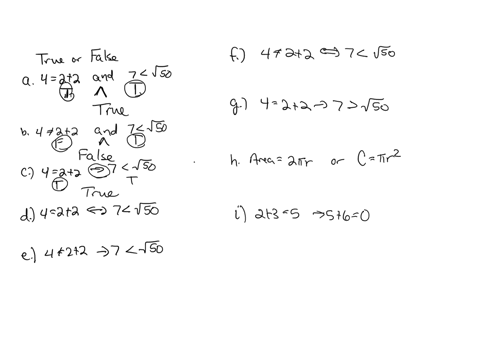 True or False
a. 4 = 2+2 and 7 < √50
T ∧ T
True
b. 4 ≠ 2+2 and 7 < √50
F T
False
c.) 4 = 2+2 → 7 < √50
T T
True
d.) 4 = 2+2 ↔ 7 < √50
e.) 4 ≠ 2+2 → 7 < √50
f.) 4 ≠ 2+2 ↔ 7 < √50
g.) 4 = 2+2 → 7 > √50
h. Area = 2πr or C = πr²
i.) 2+3 = 5 → 5+6 = 0